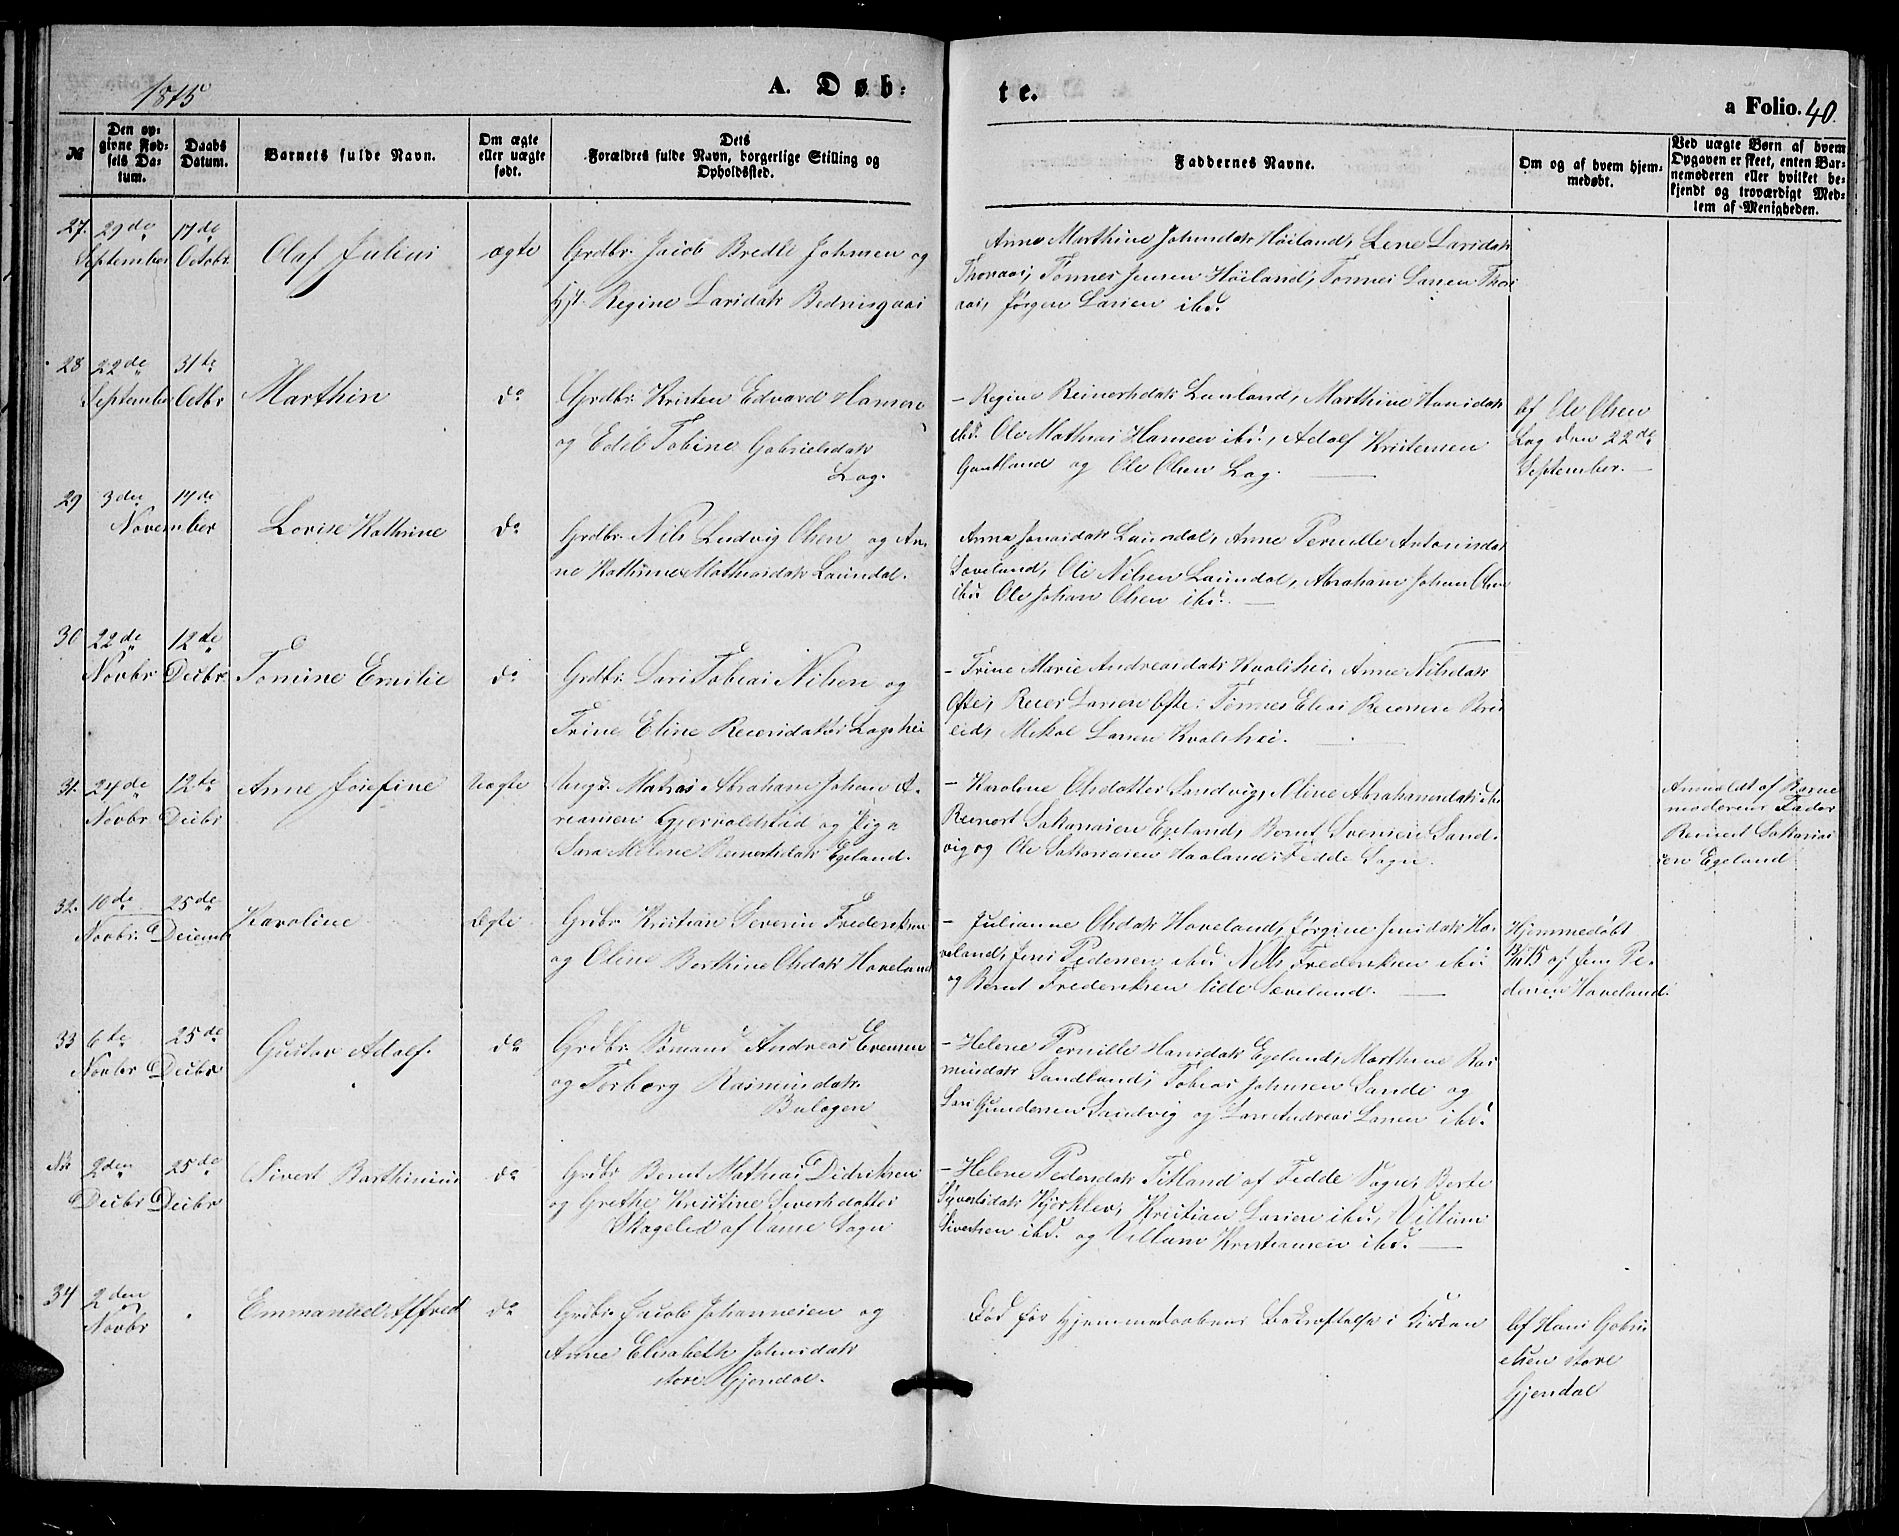 1875
A. Døb:
te.
a Folio. 40.
№
Den op-
givne Fød-
sels Da-
tum.
Daabs
Datum.
Barnets fulde Navn.
Om ægte
eller uægte
født.
Dets
Forældres fulde Navn, borgerlige Stilling og
Opholdssted.
Faddernes Navne.
Om og af hvem hjem-
medøbt.
Ved uægte Børn af hvem
Opgaven er skeet, enten Bar-
nemoderen eller hvilket be-
kjendt og troværdigt Med-
lem af Menigheden.
27. 29de 17de
September Octobr. Olaf Julius ægte Grdbr. Jacob Bredle Johnsen og
Hst. Regine Larsdatr
Anne Marthine Johnsdatr Höiland, Lene Larsdatr
Tønnes Jensen Höiland, Tønnes Larsen
Jørgen Larsen ibd.
28 22de 31te
September Octbr Marthin do Grdbr. Kristen Edvard Hansen
og Edel Tobine Gabrielsdatr
Log.
- Regine Reinertsdatr Launland, Marthine Hansdatr
ibd. Ole Mathias Hansen ibd., Adolf Kristensen
og Ole Olsen Log.
Af Ole Olsen
Log den 22de
September.
29 3die 14de
November Lovise Kathrine do Grdbr. Nils Ludvig Olsen og An-
ne Kathrine Mathiasdatr Laundal.
Anna Jonasdatr Laundal, Anne Pernille Antonisdatr
Sæveland, Ole Nilsen Laundal, Abraham Johan Olsen
ibd Ole Johan Olsen ibd.
30 22de 12te
Novbr Decbr. Tomine Emilie do Grdbr. Lars Tobias Nilsen og
Trine Eline Reiersdatter Logshei
- Trine Marie Andreasdatr Kvalshei, Anne Nilsdatr
Øfte, Reier Larsen Øfte, Tønnes Elias Reiersen
Mikal Larsen Kvalshei.
31. 24de 12te
Novbr Decbr Anne Josefine Uægte Ungk. Matias Abraham Johan A-
reansen Gjervoldstad og Pige
Sara Milene Reinertsdatr Egeland.
- Karoline Olsdatter Sandvig, Oline Abrahamsdatr ibd
Reinert Sakariasen Egeland, Bernt Svensen Sand-
vig og Ole Sakariasen Haaland i Fedde Sogn.
Anmeldt af Barne-
moderens Fader
Reinert Sakarias-
sen Egeland
32. 10de 25de
Novbr: Decemb Karoline Ægte Grdbr Kristian Severin Frederiksen
og Oline Berthine Olsdatr Haveland
- Julianne Olsdatr Haveland, Jørgine Jensdatr Ha-
veland, Jens Pedersen ibd Nils Frederiksen ibd
og Bernt Frederiksen lille Sæveland.
Hjemmedøbt
75 af Jens Pe-
dersen Haveland.
33 6te 25de
Novbr Decbr Gustav Adolf. do Grdbr. Sømand Andreas Evensen
og Torborg Rasmusdatr
Bulægen
- Helene Pernille Hansdatr Egeland, Marthine Ras-
musdatr Sandland, Tobias Johnsen Sande og
Lars Gundersen Sandvig og Lars Andreas Larsen ibd.
2den 25de
Decbr Decbr Sivert Barthinius do Grdbr Bernt Mathias Didriksen
og Grethe Kristine Sivertsdatter
Skageled af Vanse Sogn
- Helene Pedersdatr Titland af Fedde Sogn, Berte
Syvertsdatr Kjørklev, Kristian Larsen ibd, Villum
Sivertsen ibd. og Villum Kristiansen ibd.
34 2den
Novbr Emmanuel Alfred do Grdbr Jacob Johannesen og
Anne Elisabeth Johnsdatr
store Gjendal.
Død før Hjemmedaabens Bekræftelse i Kirken
Af Hans Gabri-
elsen store
Gjendal